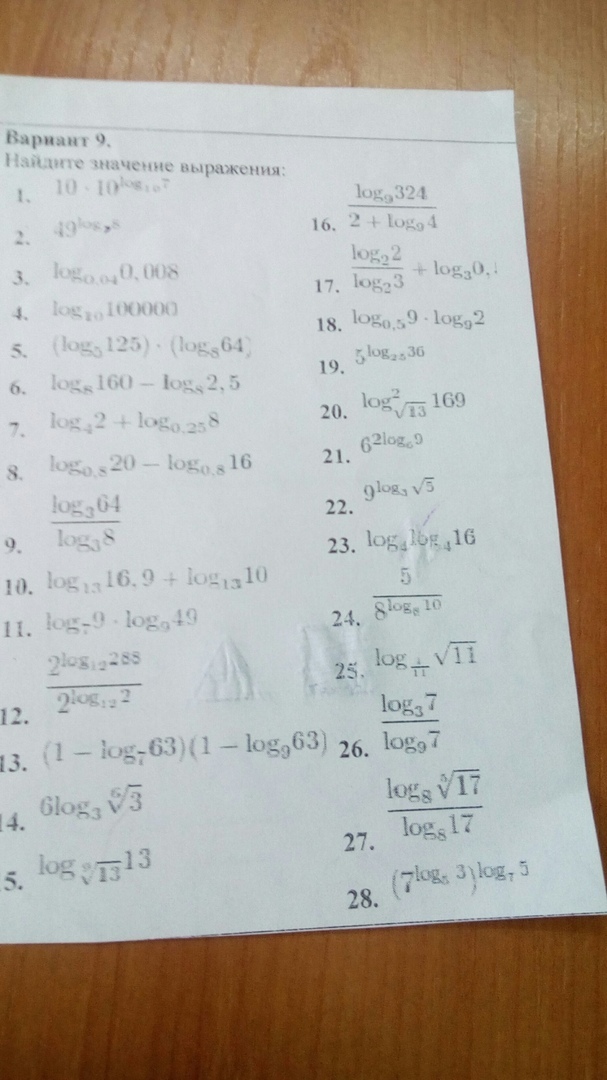 Вариант 9.
Найдите значение выражения:
1. 10 · 10^{log_{10}7}
2. 49^{log_7 8}
3. log_{0,04} 0,008
4. log_{10} 100000
5. (log_5 125) · (log_8 64)
6. log_8 160 − log_8 2,5
7. log_4 2 + log_{0,25} 8
8. log_{0,8} 20 − log_{0,8} 16
9. \frac{log_3 64}{log_3 8}
10. log_{13} 16,9 + log_{13} 10
11. log_7 9 · log_9 49
12. \frac{2^{log_{12} 288}}{2^{log_{12} 2}}
13. (1 − log_7 63)(1 − log_9 63)
14. 6log_3 \sqrt[6]{3}
5. log_{\sqrt{13}} 13
16. \frac{log_9 324}{2 + log_9 4}
17. \frac{log_2 2}{log_2 3} + log_3 0,
18. log_{0,5} 9 · log_9 2
19. 5^{log_{25} 36}
20. log^2_{\sqrt{13}} 169
21. 6^{2log_6 9}
22. 9^{log_3 \sqrt{5}}
23. log_4 log_4 16
24. \frac{5}{8^{log_8 10}}
25. log_{\frac{1}{11}} \sqrt{11}
26. \frac{log_3 7}{log_9 7}
27. \frac{log_8 \sqrt[5]{17}}{log_8 17}
28. (7^{log_5 3})^{log_7 5}